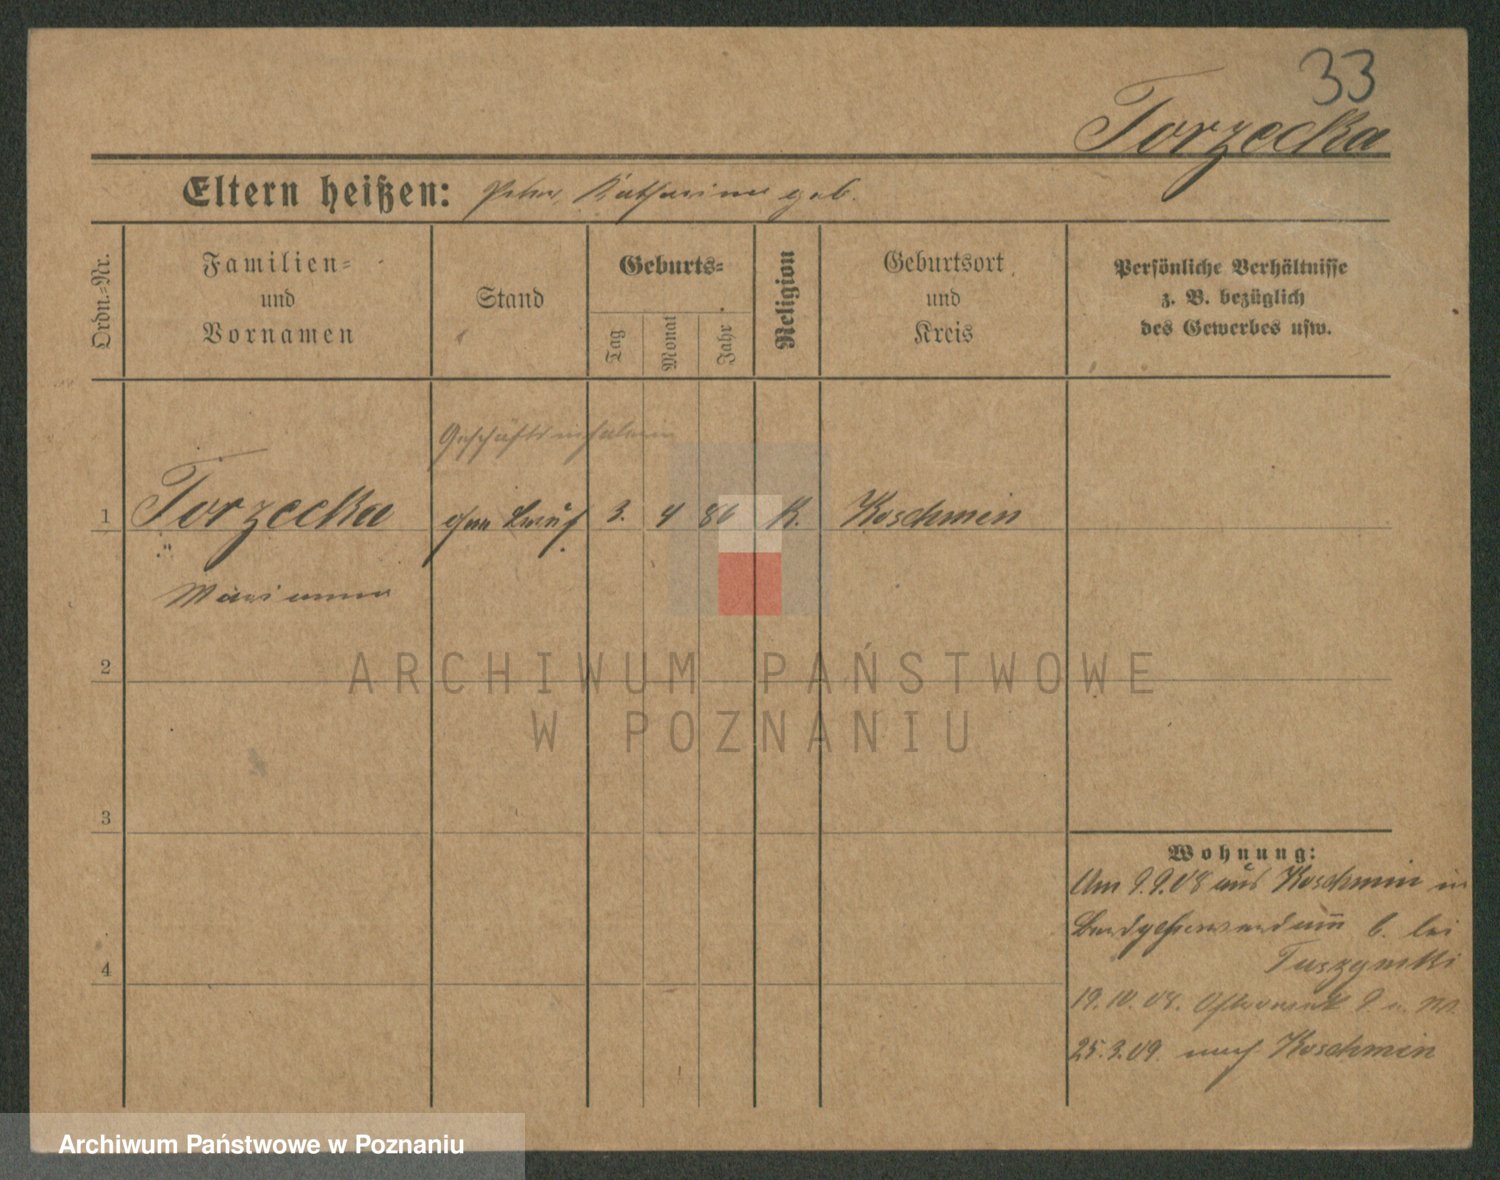 33
Torzecka
Eltern heißen: Peter, Katharina geb.
Ordn.-Nr.
Familien-
und
Vornamen
Stand
Geburts-
Tag
Monat
Jahr
Religion
Geburtsort
und
Kreis
Persönliche Verhältnisse
z. B. bezüglich
des Gewerbes usw.
1
Torzecka
Marianna
Geschäftsinhaberin
ohne Beruf
3. 4 86
K.
Koschmin
2
3
4
ARCHIWUM PAŃSTWOWE
W POZNANIU
Wohnung:
Am 9.9.08 aus Koschmin in
6. bei
19.10.08.
25.3.09. nach Koschmin
Archiwum Państwowe w Poznaniu